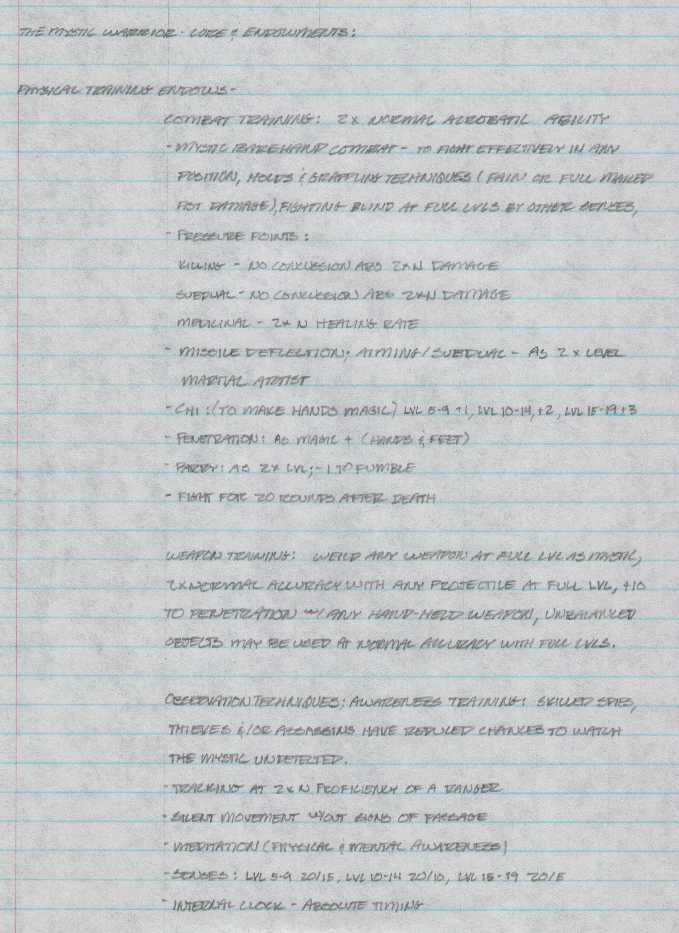 THE MYSTIC WARRIOR - CORE & ENDOWMENTS:
PHYSICAL TRAINING ENDOWS -
COMBAT TRAINING: 2X NORMAL ACROBATIC ABILITY
- MYSTIC BAREHAND COMBAT - TO FIGHT EFFECTIVELY IN ANY
POSITION, HOLDS & GRAPPLING TECHNIQUES (PAIN OR FULL MAILED
FIST DAMAGE), FIGHTING BLIND AT FULL LVLS BY OTHER SENSES,
- PRESSURE POINTS:
KILLING - NO CONCUSSION ABS 2XN DAMAGE
SUBDUAL - NO CONCUSSION ABS 2XN DAMAGE
MEDICINAL - 2X N HEALING RATE
- MISSILE DEFLECTION; AIMING/SUBDUAL - AS 2 X LEVEL
MARTIAL ARTIST
- CHI: (TO MAKE HANDS MAGIC) LVL 5-9 +1, LVL 10-14, +2, LVL 15-19 +3
- PENETRATION: AS MAGIC + (HANDS & FEET)
- PARRY: AS 2X LVL; -1 TO FUMBLE
- FIGHT FOR 20 ROUNDS AFTER DEATH
WEAPON TRAINING: WEILD ANY WEAPON AT FULL LVL AS MYSTIC,
2X NORMAL ACCURACY WITH ANY PROJECTILE AT FULL LVL, +10
TO PENETRATION W/ ANY HAND-HELD WEAPON, UNBALANCED
OBJECTS MAY BE USED AT NORMAL ACCURACY WITH FULL LVLS.
OBSERVATION TECHNIQUES; AWARENESS TRAINING: SKILLED SPIES,
THIEVES &/OR ASSASSINS HAVE REDUCED CHANCES TO WATCH
THE MYSTIC UNDETECTED.
- TRACKING AT 2X N PROFICIENCY OF A RANGER
- SILENT MOVEMENT W/OUT SIGNS OF PASSAGE
- MEDITATION (PHYSICAL & MENTAL AWARENESS)
- SENSES: LVL 5-9 20/15, LVL 10-14 20/10, LVL 15-19 20/5
- INTERNAL CLOCK - ABSOLUTE TIMING